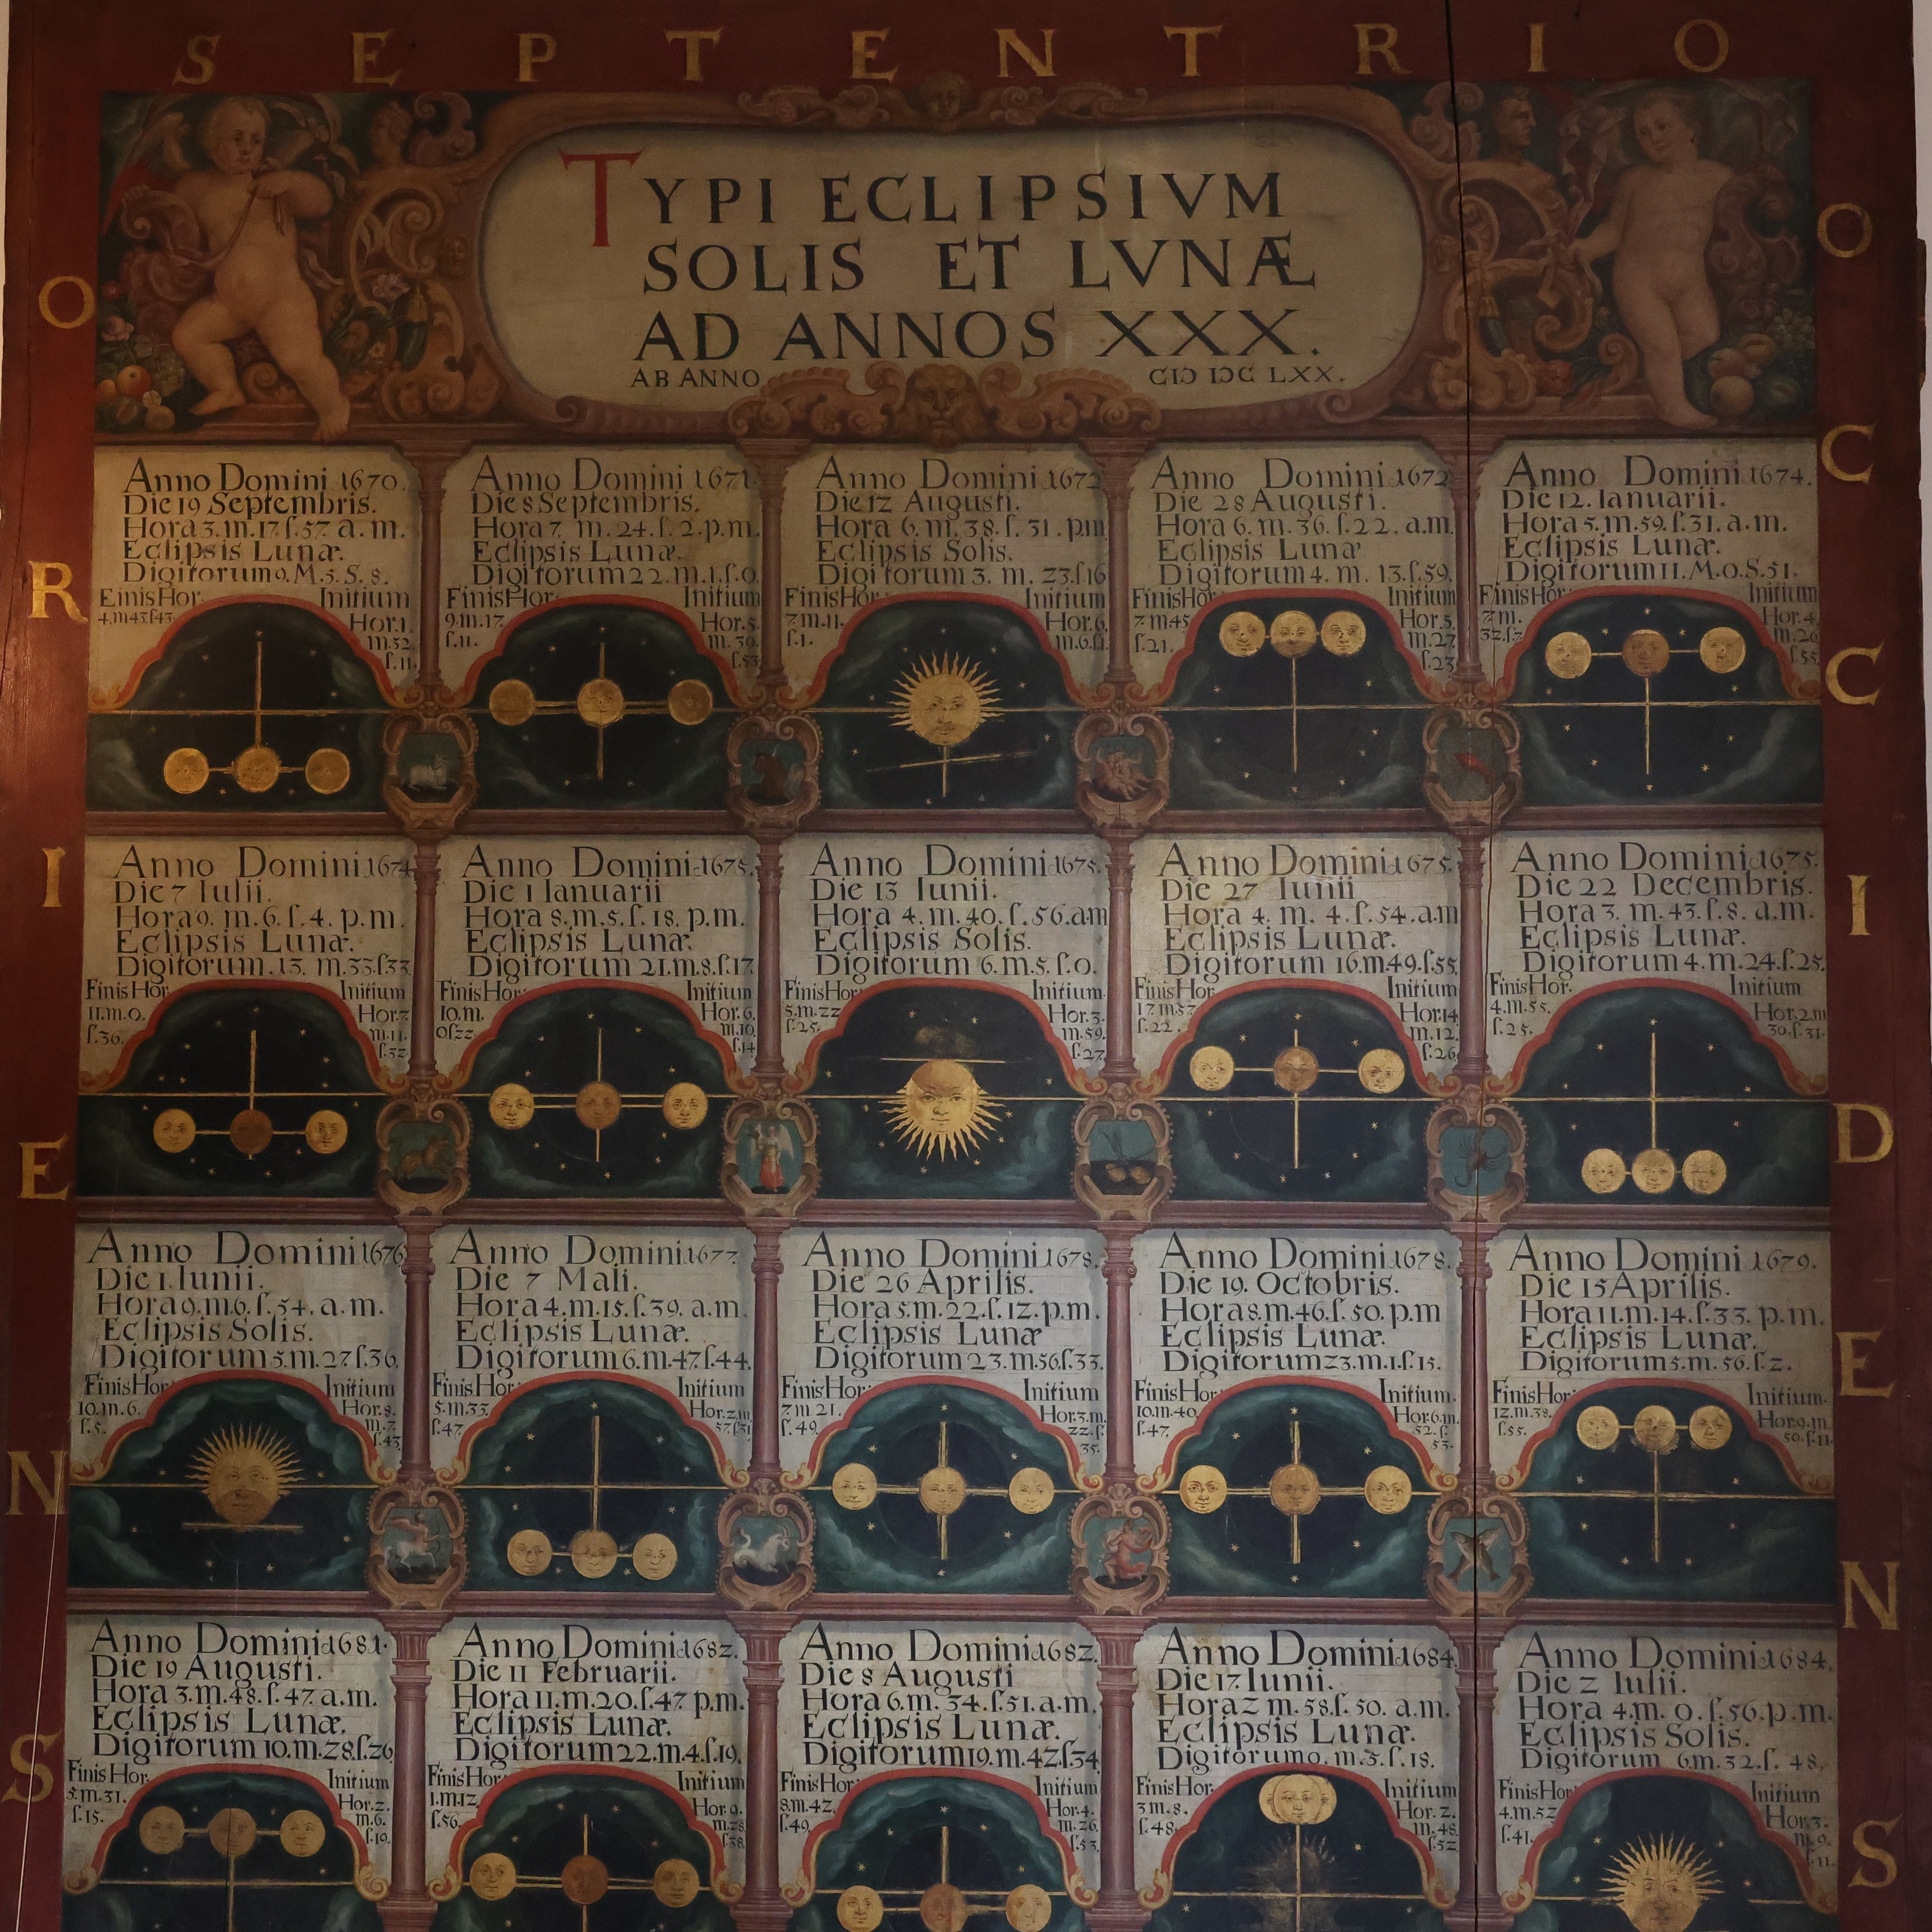 SEPTENTRIO
ORIENS
OCCIDENS
TYPI ECLIPSIVM
SOLIS ET LVNÆ
AD ANNOS XXX.
AB ANNO CIↃ IↃC LXX.
Anno Domini 1670.
Die 19 Septembris.
Hora 3. m. 17. ſ. 57. a. m.
Eclipsis Lunæ.
Digitorum 9. M. 5. S. 8.
Finis Hor.
4. m 43 ſ 43.
Initium
Hor. 1.
m. 52.
ſ. 11.
Anno Domini 1671.
Die 8 Septembris.
Hora 7. m. 24. ſ. 2. p. m.
Eclipsis Lunæ.
Digitorum 22. m. 1. ſ. 0.
Finis Hor.
9. m. 17.
ſ. 11.
Initium
Hor. 5.
m. 30.
ſ. 53.
Anno Domini 1672
Die 12 Augusti.
Hora 6. m. 38. ſ. 31. pm
Eclipsis Solis.
Digitorum 3. m. 23. ſ 16
Finis Hor.
7 m. 11.
ſ. 1.
Initium
Hor. 6.
m. 6. ſ. 1.
Anno Domini 1672
Die 28 Augusti.
Hora 6. m. 36. ſ. 22. a.m.
Eclipsis Lunæ
Digitorum 4. m. 13. ſ. 59.
Finis Hor.
7 m 45
ſ. 21.
Initium
Hor. 5.
m. 27.
ſ. 23.
Anno Domini 1674.
Die 12. Ianuarii.
Hora 5. m. 59. ſ. 31. a. m.
Eclipsis Lunæ.
Digitorum 11. M. 0. S. 51.
Finis Hor.
7 m.
32. ſ. 7.
Initium
Hor. 4.
m. 26
ſ. 55.
Anno Domini 1674
Die 7 Iulii.
Hora 9. m. 6. ſ. 4. p. m.
Eclipsis Lunæ.
Digitorum. 13. m. 33. ſ 33
Finis Hor.
11. m. 0.
ſ. 36.
Initium
Hor. 7
m. 11.
ſ. 32
Anno Domini 1675.
Die 1 Ianuarii
Hora 8. m. 5. ſ. 18. p. m.
Eclipsis Lunæ.
Digitorum 21. m. 8. ſ. 17
Finis Hor.
10. m.
0 ſ 22.
Initium
Hor. 6.
m. 10.
ſ. 14
Anno Domini 1675.
Die 13 Iunii.
Hora 4. m. 40. ſ. 56. am
Eclipsis Solis.
Digitorum 6. m. 5. ſ. 0.
Finis Hor.
5. m. 22
ſ. 25.
Initium.
Hor. 3.
m. 59.
ſ. 27.
Anno Domini 1675.
Die 27 Iunii
Hora 4. m. 4. ſ. 54. a.m
Eclipsis Lunæ.
Digitorum 16. m 49. ſ. 55.
Finis Hor.
17 m 57
ſ. 22.
Initium
Hor. 14
m. 12.
ſ. 26.
Anno Domini 1675.
Die 22 Decembris.
Hora 3. m. 43. ſ. 8. a. m.
Eclipsis Lunæ.
Digitorum 4. m. 24. ſ. 25.
Finis Hor.
4. m. 55.
ſ. 25.
Initium
Hor. 2. m
30. ſ. 31.
Anno Domini 1676
Die 1. Iunii.
Hora 9. m. 6. ſ. 54. a. m.
Eclipsis Solis.
Digitorum 5. m. 27. ſ. 36.
Finis Hor.
10. m. 6.
ſ. 5.
Initium
Hor. 8.
m. 7.
ſ. 43.
Anno Domini 1677.
Die 7 Maii.
Hora 4. m. 15. ſ. 39. a. m.
Eclipsis Lunæ.
Digitorum 6. m. 47. ſ. 44.
Finis Hor.
5. m. 33.
ſ. 47.
Initium
Hor. 2. m
57. ſ 31
Anno Domini 1678.
Die 26 Aprilis.
Hora 5 m. 22. ſ. 12. p. m.
Eclipsis Lunæ
Digitorum 23. m. 56. ſ. 33.
Finis Hor.
7 m 21.
ſ. 49.
Initium
Hor. 3. m.
22. ſ.
35.
Anno Domini 1678.
Die 19. Octobris.
Hora 8. m. 46. ſ. 50. p. m
Eclipsis Lunæ.
Digitorum 23. m. 1. ſ. 15.
Finis Hor.
10. m. 40.
ſ. 47.
Initium.
Hor. 6. m.
52. ſ.
53.
Anno Domini 1679.
Die 15 Aprilis.
Hora 11. m. 14. ſ. 33. p. m.
Eclipsis Lunæ.
Digitorum 5. m. 56. ſ. 2.
Finis Hor.
12. m. 38.
ſ. 55.
Initium.
Hor. 9. m.
50. ſ. 11.
Anno Domini 1681.
Die 19 Augusti.
Hora 3. m. 48. ſ. 47. a. m.
Eclipsis Lunæ.
Digitorum 10. m. 28. ſ. 26
Finis Hor.
5. m. 31.
ſ. 15.
Initium
Hor. 2.
m. 6.
ſ. 19.
Anno Domini 1682.
Die 11 Februarii.
Hora 11. m. 20. ſ. 47 p. m.
Eclipsis Lunæ.
Digitorum 22. m. 4. ſ. 19.
Finis Hor.
1. m. 12.
ſ. 56.
Initium
Hor. 9.
m. 28
ſ. 38.
Anno Domini 1682.
Die 8 Augusti
Hora 6. m. 34. ſ. 51. a. m.
Eclipsis Lunæ.
Digitorum 19. m. 42. ſ 34
Finis Hor.
8. m. 42.
ſ. 49.
Initium
Hor. 4.
m. 26.
ſ. 53.
Anno Domini 1684.
Die 17 Iunii.
Hora 2 m. 58. ſ. 50. a. m.
Eclipsis Lunæ.
Digitorum 0. m. 5. ſ. 18.
Finis Hor.
3 m. 8.
ſ. 48.
Initium
Hor. 2.
m. 48.
ſ. 52
Anno Domini 1684.
Die 2 Iulii.
Hora 4. m. 0. ſ. 56. p. m.
Eclipsis Solis.
Digitorum 6 m. 32. ſ. 48.
Finis Hor.
4. m. 52
ſ. 41.
Initium
Hor. 3.
m. 9.
ſ. 11.